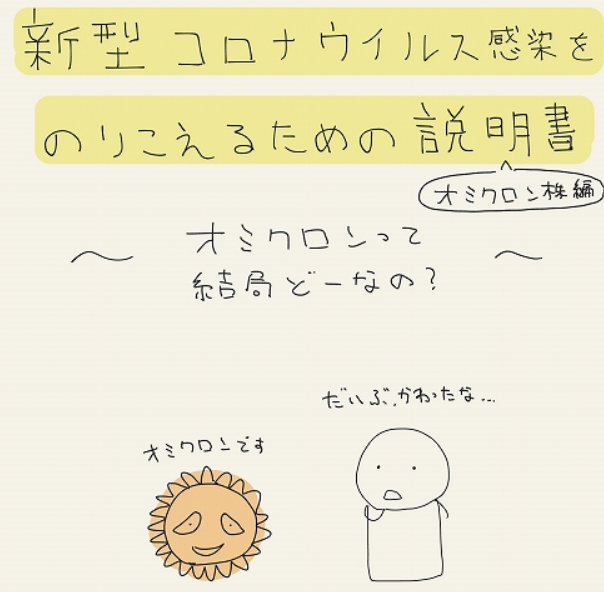 新型コロナウイルス感染を
のりこえるための説明書
オミクロン株編
〜 オミクロンって 〜
結局どーなの?
だいぶかわったな...
オミクロンです